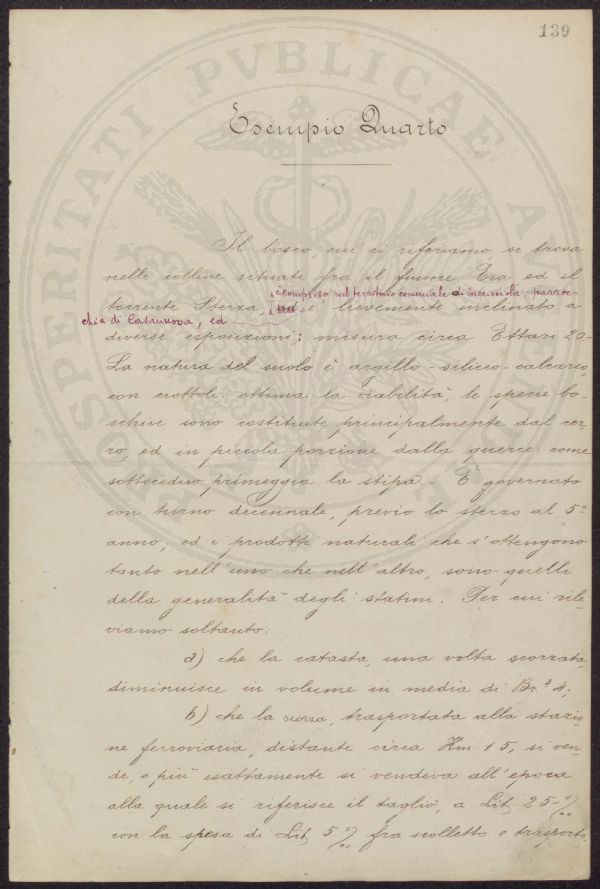 139
Esempio Quarto
Il bosco, cui ci riferiamo si trova
nelle colline situate fra il fiume Era ed il
è compreso nel territorio comunale di , parroc-
torrente Sterza, è lievemente inclinato a
chia di Casannova, ed
diverse esposizioni: misura circa Ettari 20-
La natura del suolo è argillo-siliceo-calcareo,
con ciottoli, ottima la viabilità, le specie bo-
schive sono costituite principalmente dal cer-
ro, ed in piccola porzione dalla querce: come
sottoceduo primeggia la stipa. - È governato
con turno decennale, previo lo sterzo al 5°
anno, ed i prodotti naturali che s'ottengono
tanto nell'uno che nell'altro, sono quelli
della generalità degli statini. Per cui rile-
viamo soltanto:
a) che la catasta, una volta scorzata,
diminuisce in volume in media di Br.ᵃ 4;
b) che la scorza, trasportata alla stazio-
ne ferroviaria, distante circa Km. 15, si ven-
de, o più esattamente si vendeva all'epoca
alla quale si riferisce il taglio, a Lit. 25 %
con la spesa di Lit. 5 % fra scolletto e trasporto.
PROSPERITATI PVBLICAE AVGENDAE